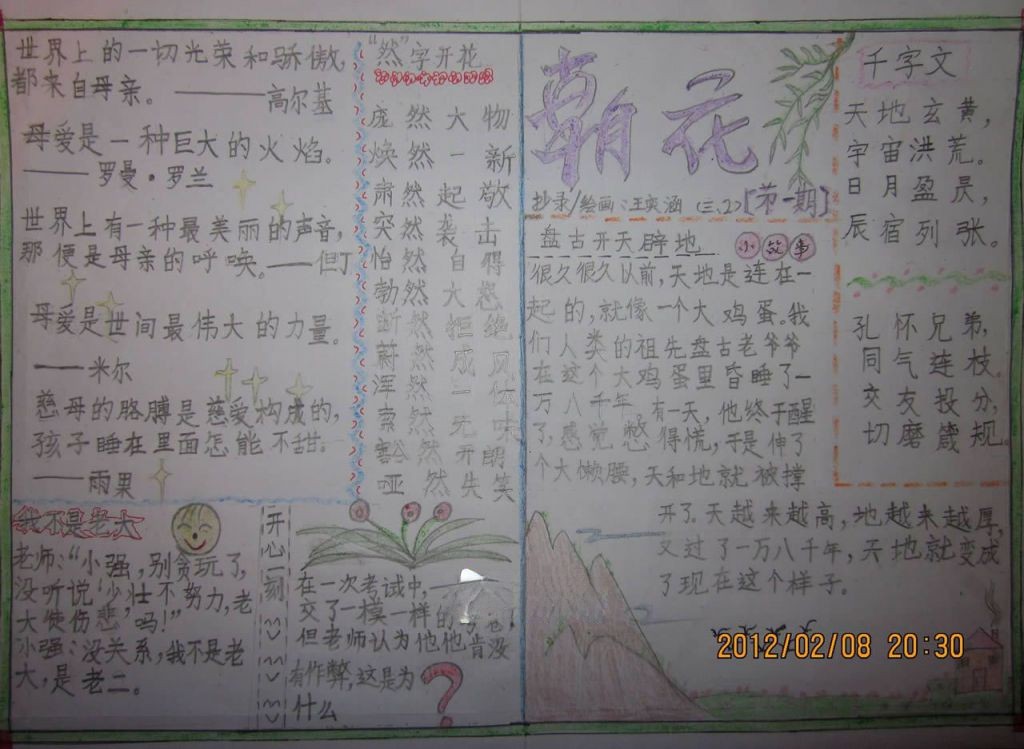 世界上的一切光荣和骄傲,
都来自母亲。 ——高尔基
母爱是一种巨大的火焰。
——罗曼·罗兰
世界上有一种最美丽的声音,
那便是母亲的呼唤。——但丁
母爱是世间最伟大的力量。
——米尔
慈母的胳膊是慈爱构成的,
孩子睡在里面怎能不甜。
——雨果
“然”字开花
庞然大物
焕然一新
肃然起敬
突然袭击
怡然自得
勃然大怒
断然拒绝
蔚然成风
浑然一体
索然无味
豁然开朗
哑然失笑
我不是老大
老师:“小强,别贪玩了,
没听说‘少壮不努力,老
大徒伤悲’吗!”
小强:没关系,我不是老
大,是老二。
开心一刻
在一次考试中,
交了一模一样的
但老师认为他他肯没
有作弊,这是为
什么
?
朝花
抄录/绘画:王奕涵(三、2)[第一期]
盘古开天辟地 小故事
很久很久以前,天地是连在一
起的,就像一个大鸡蛋。我
们人类的祖先盘古老爷爷
在这个大鸡蛋里昏睡了一
万八千年。有一天,他终于醒
了,感觉憋得慌,于是伸了
个大懒腰,天和地就被撑
开了。天越来越高,地越来越厚,
又过了一万八千年,天地就变成
了现在这个样子。
千字文
天地玄黄,
宇宙洪荒。
日月盈昃,
辰宿列张。
孔怀兄弟,
同气连枝。
交友投分,
切磨箴规。
2012/02/08 20:30